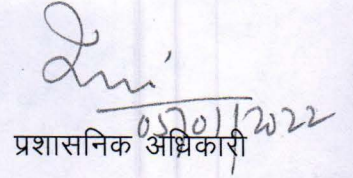 05/01/2022
प्रशासनिक अधिकारी